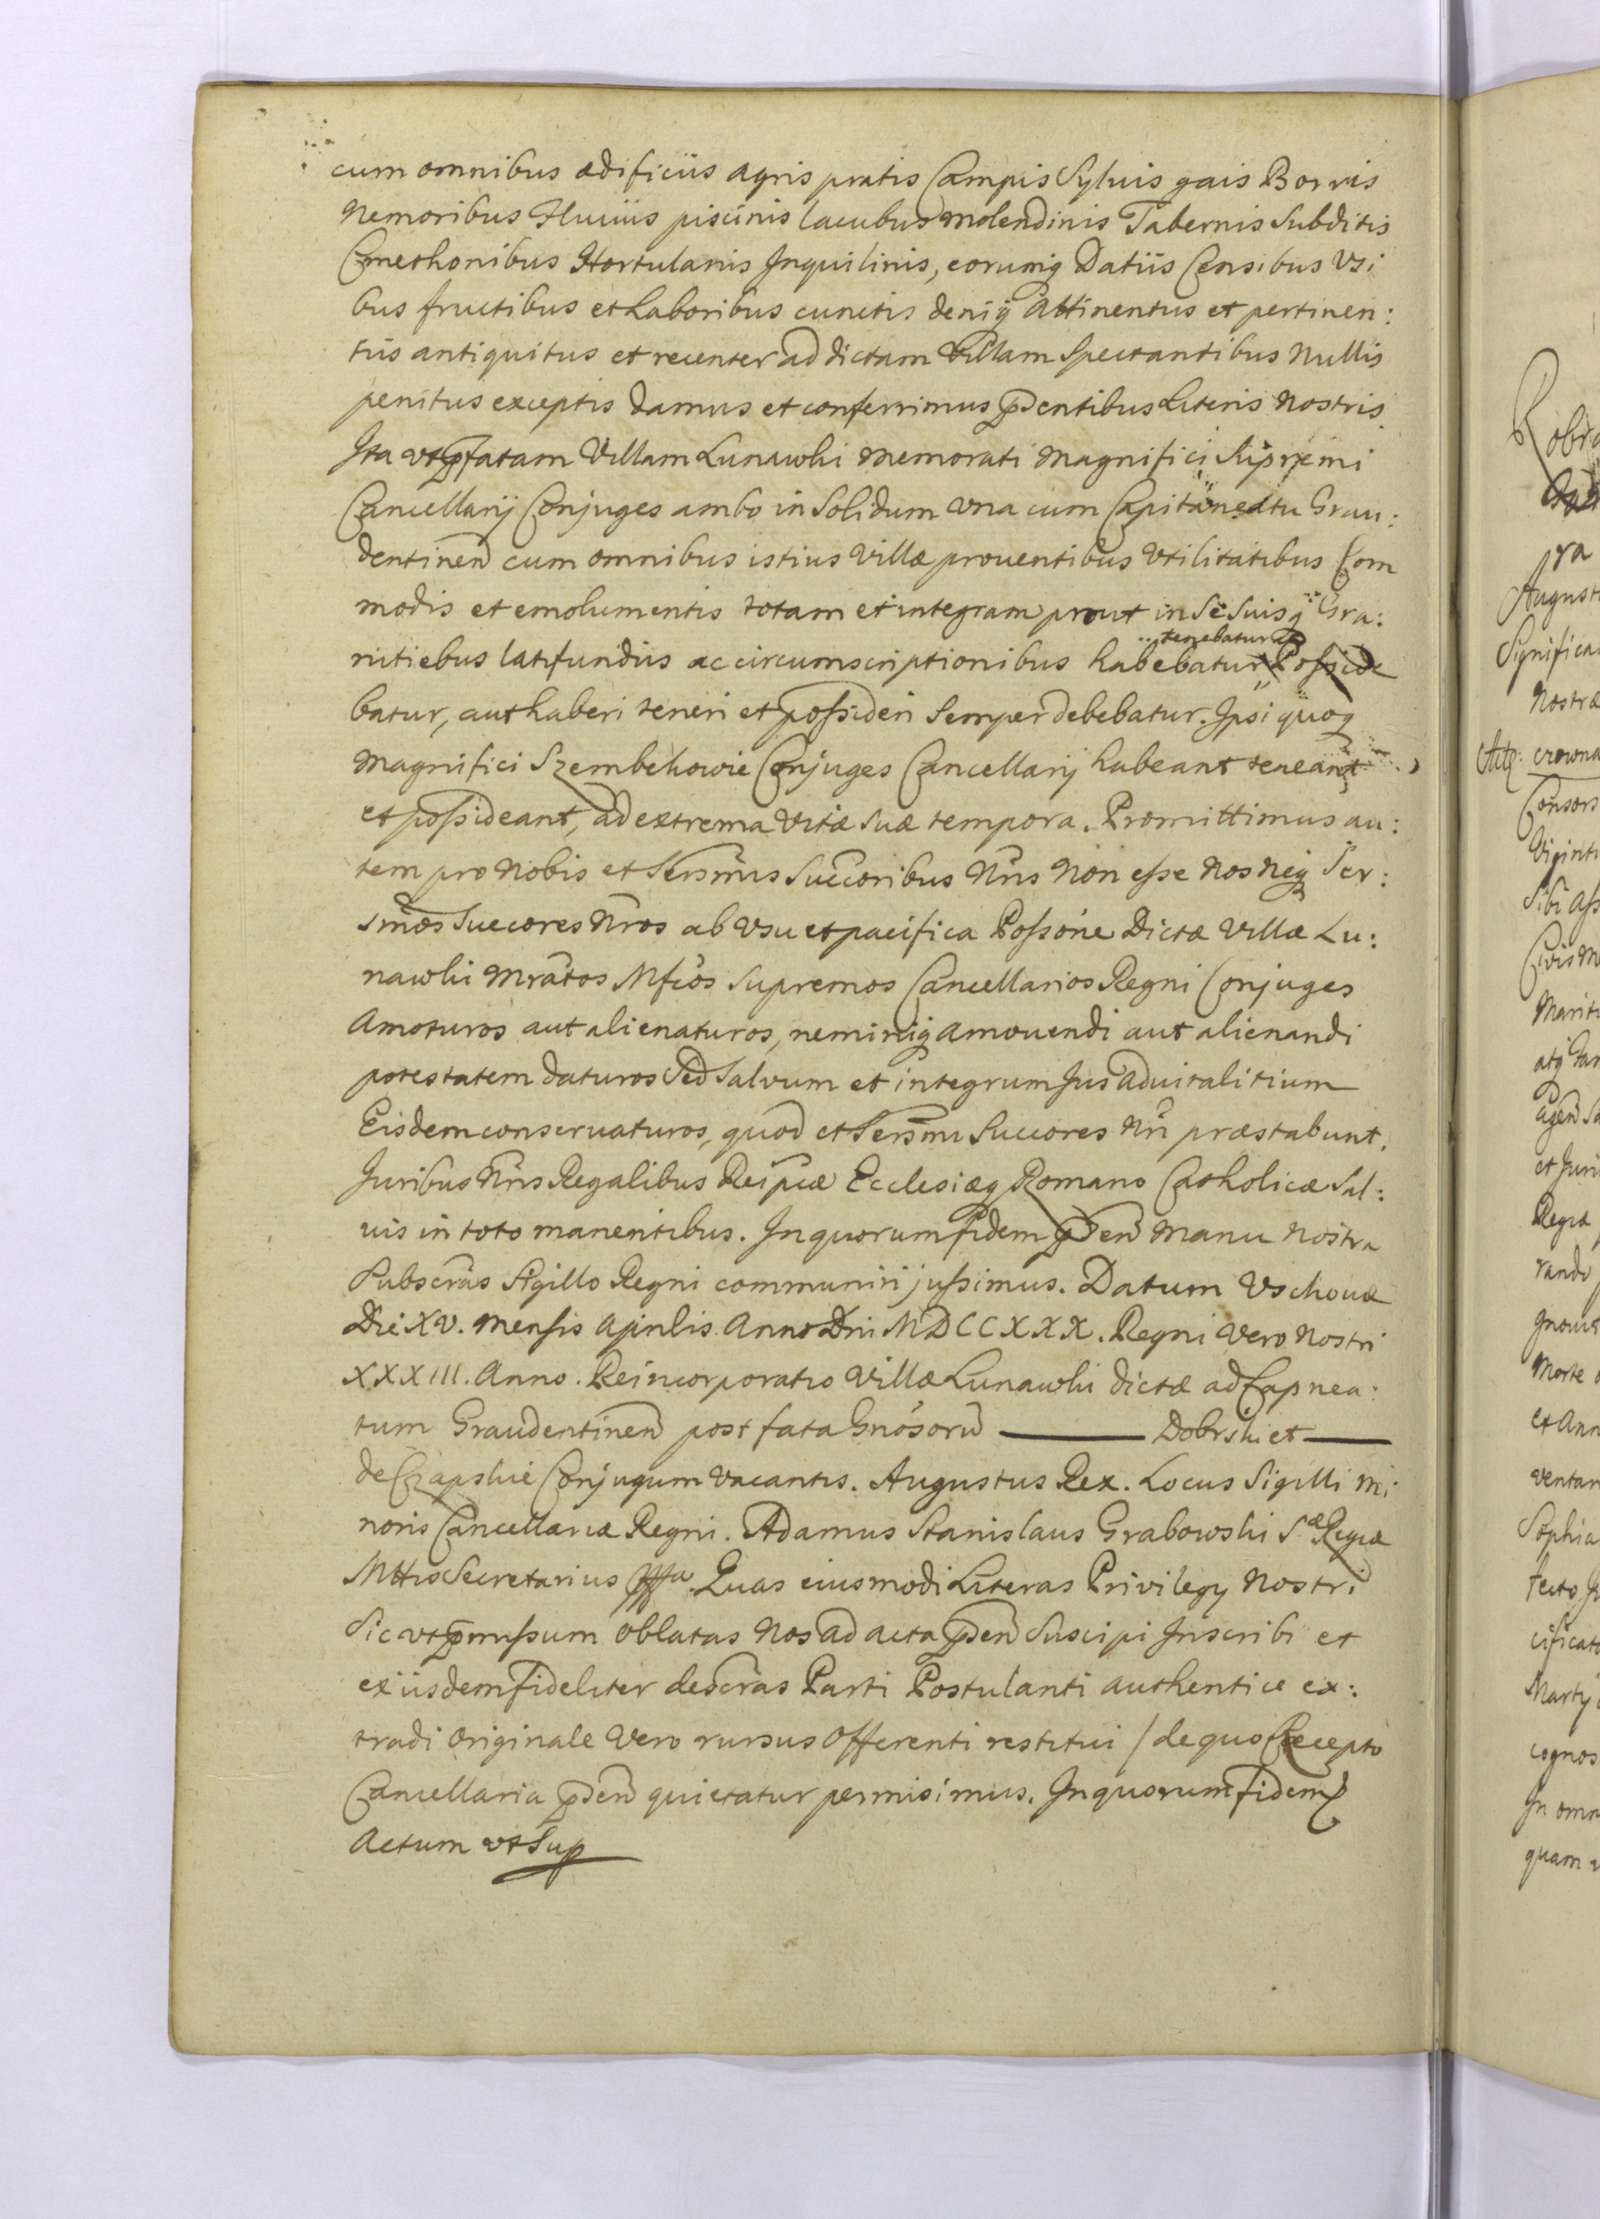 cum omnibus ædificiis agris pratis Campis Sylvis gais Borris
Nemoribus Fluviis piscinis lacubus Molendinis Tabernis Subditis
Cmethonibus Hortulanis Inquilinis, eorumq Datiis Censibus Vsi
bus fructibus et Laboribus cunctis deniq Attinentiis et pertinen:
tiis antiquitus et recenter ad dictam Villam Spectantibus Nullis
penitus exceptis damus et conferrimus pñdentibus Literis Nostris.
Ita vt pfatam Villam Lunawki Memorati Magnifici Supremi
Cancellarij Conjuges ambo in Solidum vna cum Capitaneatu Grau:
dentineñ cum omnibus istius Villæ prouentibus Vtilitatibus Com
modis et emolumentis totam et integram prout in Se Suisq Gra:
nitiebus latifundiis ac circumscriptionibus habebatur tenebatur et Posside
batur, aut haberi teneri et possideri Semper debebatur. Ipsi quoq
Magnifici Szembekowie Conjuges Cancellarij habeant teneant
et possideant, ad extrema vitæ suæ tempora. Promittimus au:
tem pro Nobis et Sersmis Succoribus Nris Non esse Nos Neq Ser:
smos Succores Nros ab Vsu et pacifica Possone Dictæ Villæ Lu:
nawki Mratos Mfcos Supremos Cancellarios Regni Conjuges
Amoturos aut alienaturos, neminiq amouendi aut alienandi
potestatem daturos Sed Salvum et integrum Jus aduitalitium
Eisdem conseruaturos, quod et Sersmi Succores Nri præstabunt.
Juribus Nris Regalibus Reipcæ Ecclesiæq Romano Catholicæ Sal:
uis in toto manentibus. In quorum fidem pñdeñ Manu Nostra
Subscras Sigillo Regni communiri jussimus. Datum Vschouæ
Die XV. Mensis Aprilis Anno Dni MDCCXXX. Regni Vero Nostri
XXXIII. Anno. Reincorporatio Villæ Lunawki dictæ ad Capnea:
tum Graudentineñ post fata Gnosorũ ——— Dobrski et ———
de Czapskie Conjugum Vacantis. Augustus Rex. Locus Sigilli Mi
noris Cancellariæ Regni. Adamus Stanislaus Grabowski Sæ Regiæ
Mttis Secretarius. Quas eiusmodi Literas Privilegy Nostri
Sic vt pmissum Oblatas Nos ad acta pñdeñ Suscipi Inscribi et
ex iisdem fideliter descras Parti Postulanti authentice ex:
tradi Originale Vero rursus Offerenti restitui / de quo Recepto
Cancellaria pñdeñ quietatur permisimus. In quorum fidem
Actum vt Sup